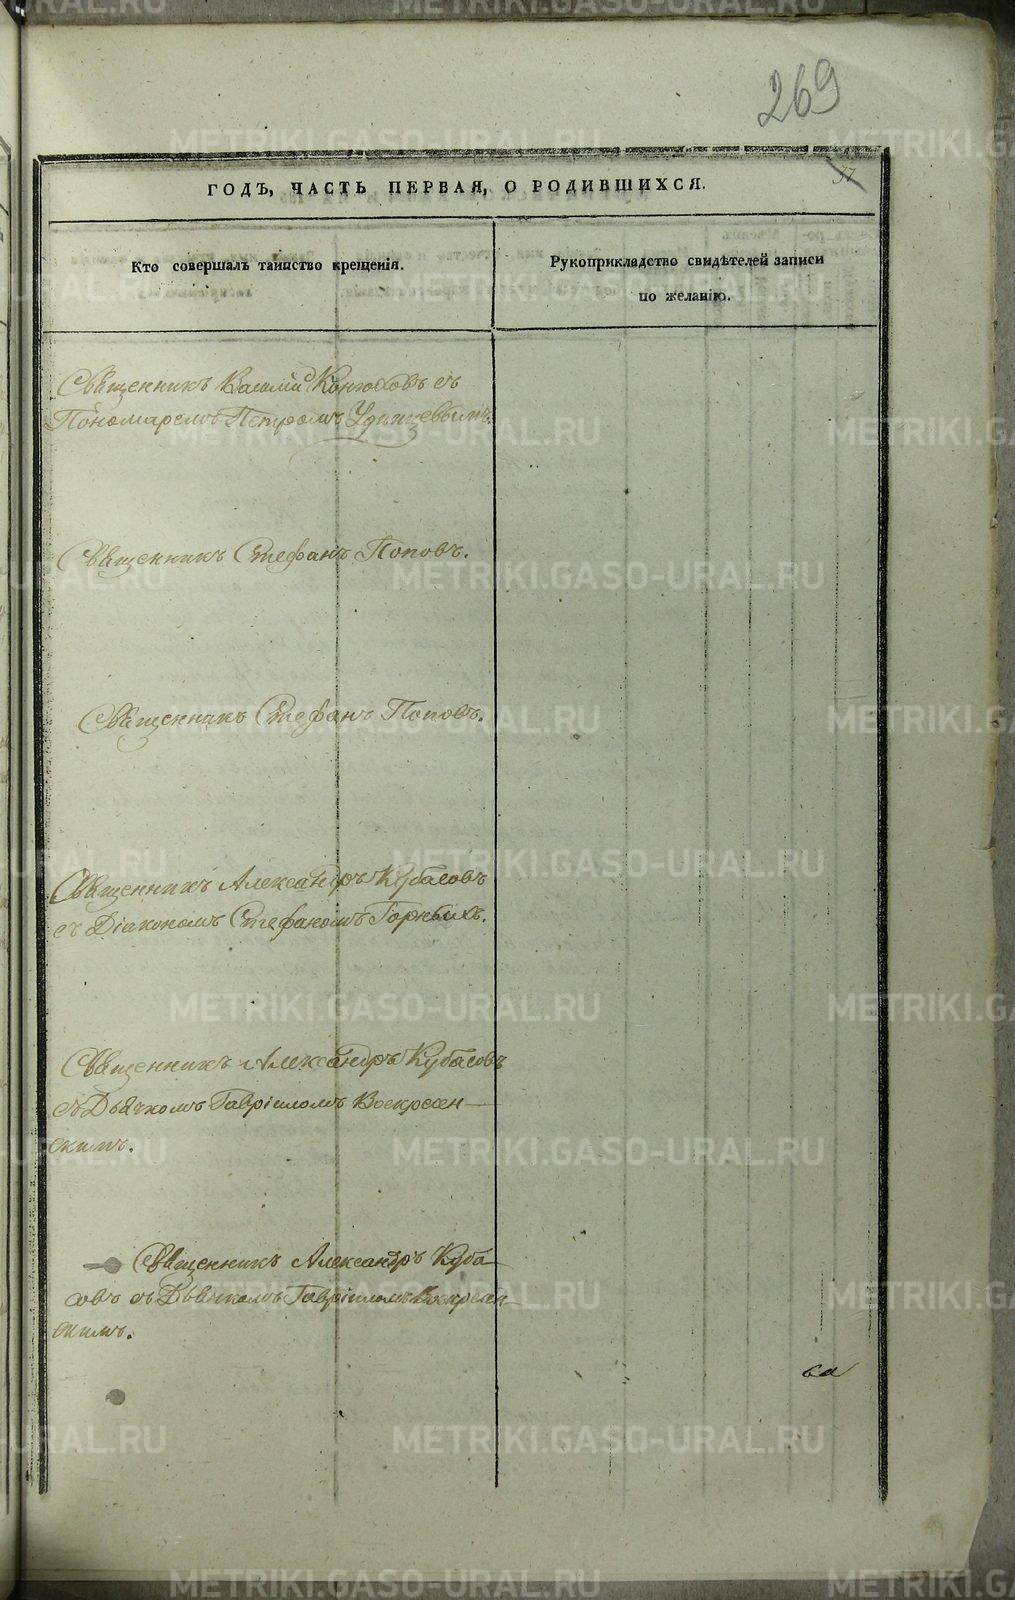 269
57
ГОДЪ, ЧАСТЬ ПЕРВАЯ, О РОДИВШИХСЯ.
Кто совершалъ таинство крещенія.
Рукоприкладство свидѣтелей записи
по желанію.
Священникъ Василій Конюховъ съ
Пономаремъ Петромъ
Священникъ Стефанъ Поповъ.
Священникъ Стефанъ Поповъ.
Священникъ Александръ Кубасовъ
съ Діакономъ Стефаномъ Горныхъ.
Священникъ Александръ Кубасовъ
съ Дьячкомъ Гавріиломъ Воскресен-
скимъ.
Священникъ Александръ Куба-
совъ съ Дьячкомъ Гавріиломъ Воскресен-
скимъ.
METRIKI.GASO-URAL.RU